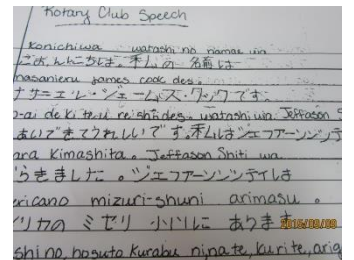 Rotary Club Speech
Konichiwa watashi no namae wa
こんにちは。私の 名前は
nasanieru James cook des.
ナサニエル・ジェームズ・クックです。
o-ai de ki teu reishi des. watashi wa Jeffason S
あいできてうれしいです。私はジェファーソンシテ
ara kimashita. Jeffason Shiti wa
らきました。ジェファーソンシティは
ericano mizuri-shuni arimasu.
メリカの ミズリ 小にに あります
2015/09/09
shino, hosuto kurabu ni nate, kurite, arig